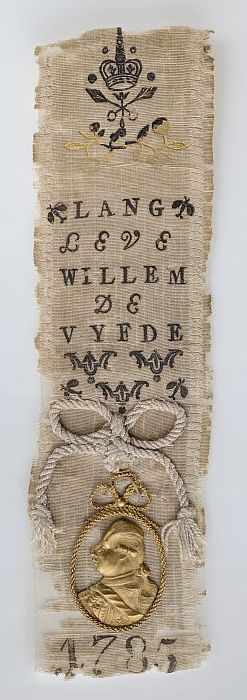 LANG
LEVE
WILLEM
DE
VYFDE
1785